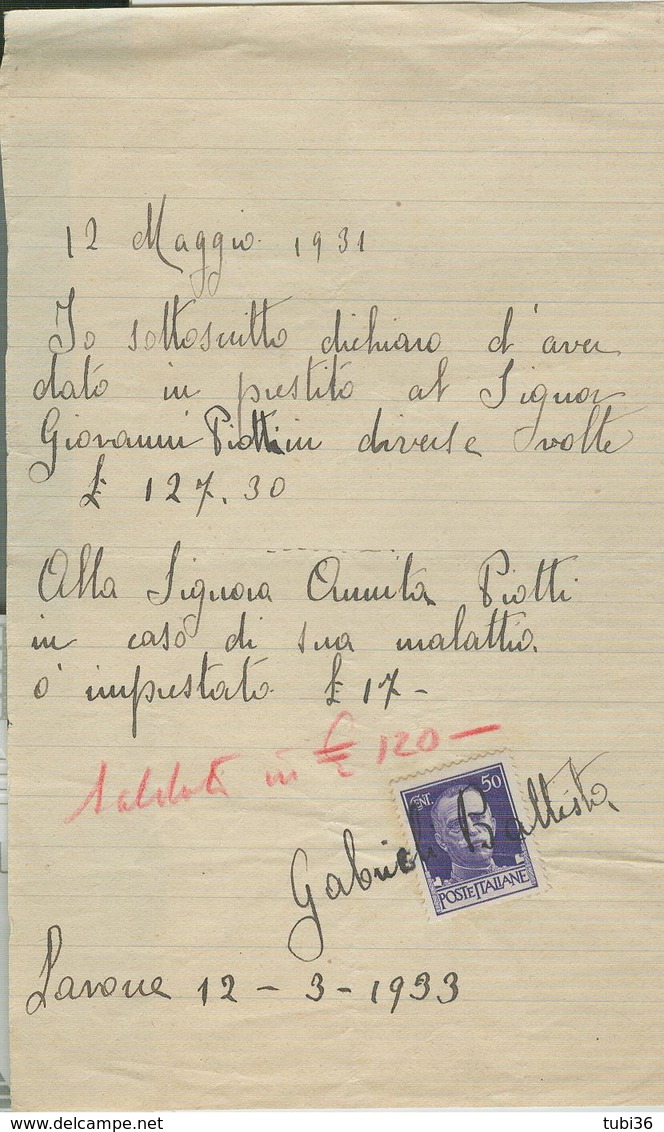 12 Maggio 1931
Io sottoscritto dichiaro d'aver
dato in prestito al Signor
Giovanni Piotti in diverse volte
£ 127.30
Alla Signora Annita Piotti
in caso di sua malattia
ò imprestato £ 17 -
Saldato in £ 120 -
CENT. 50
Gabrieli Battista
POSTE ITALIANE
Lavone 12 - 3 - 1933
tubi36